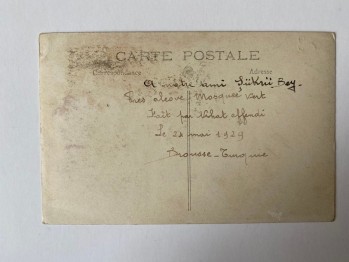 CARTE POSTALE
Correspondance Adresse
A notre ami Şükrü Bey.
Mosquée vert
Fait par effendi
Le 24 mai 1929
Brousse-Turquie